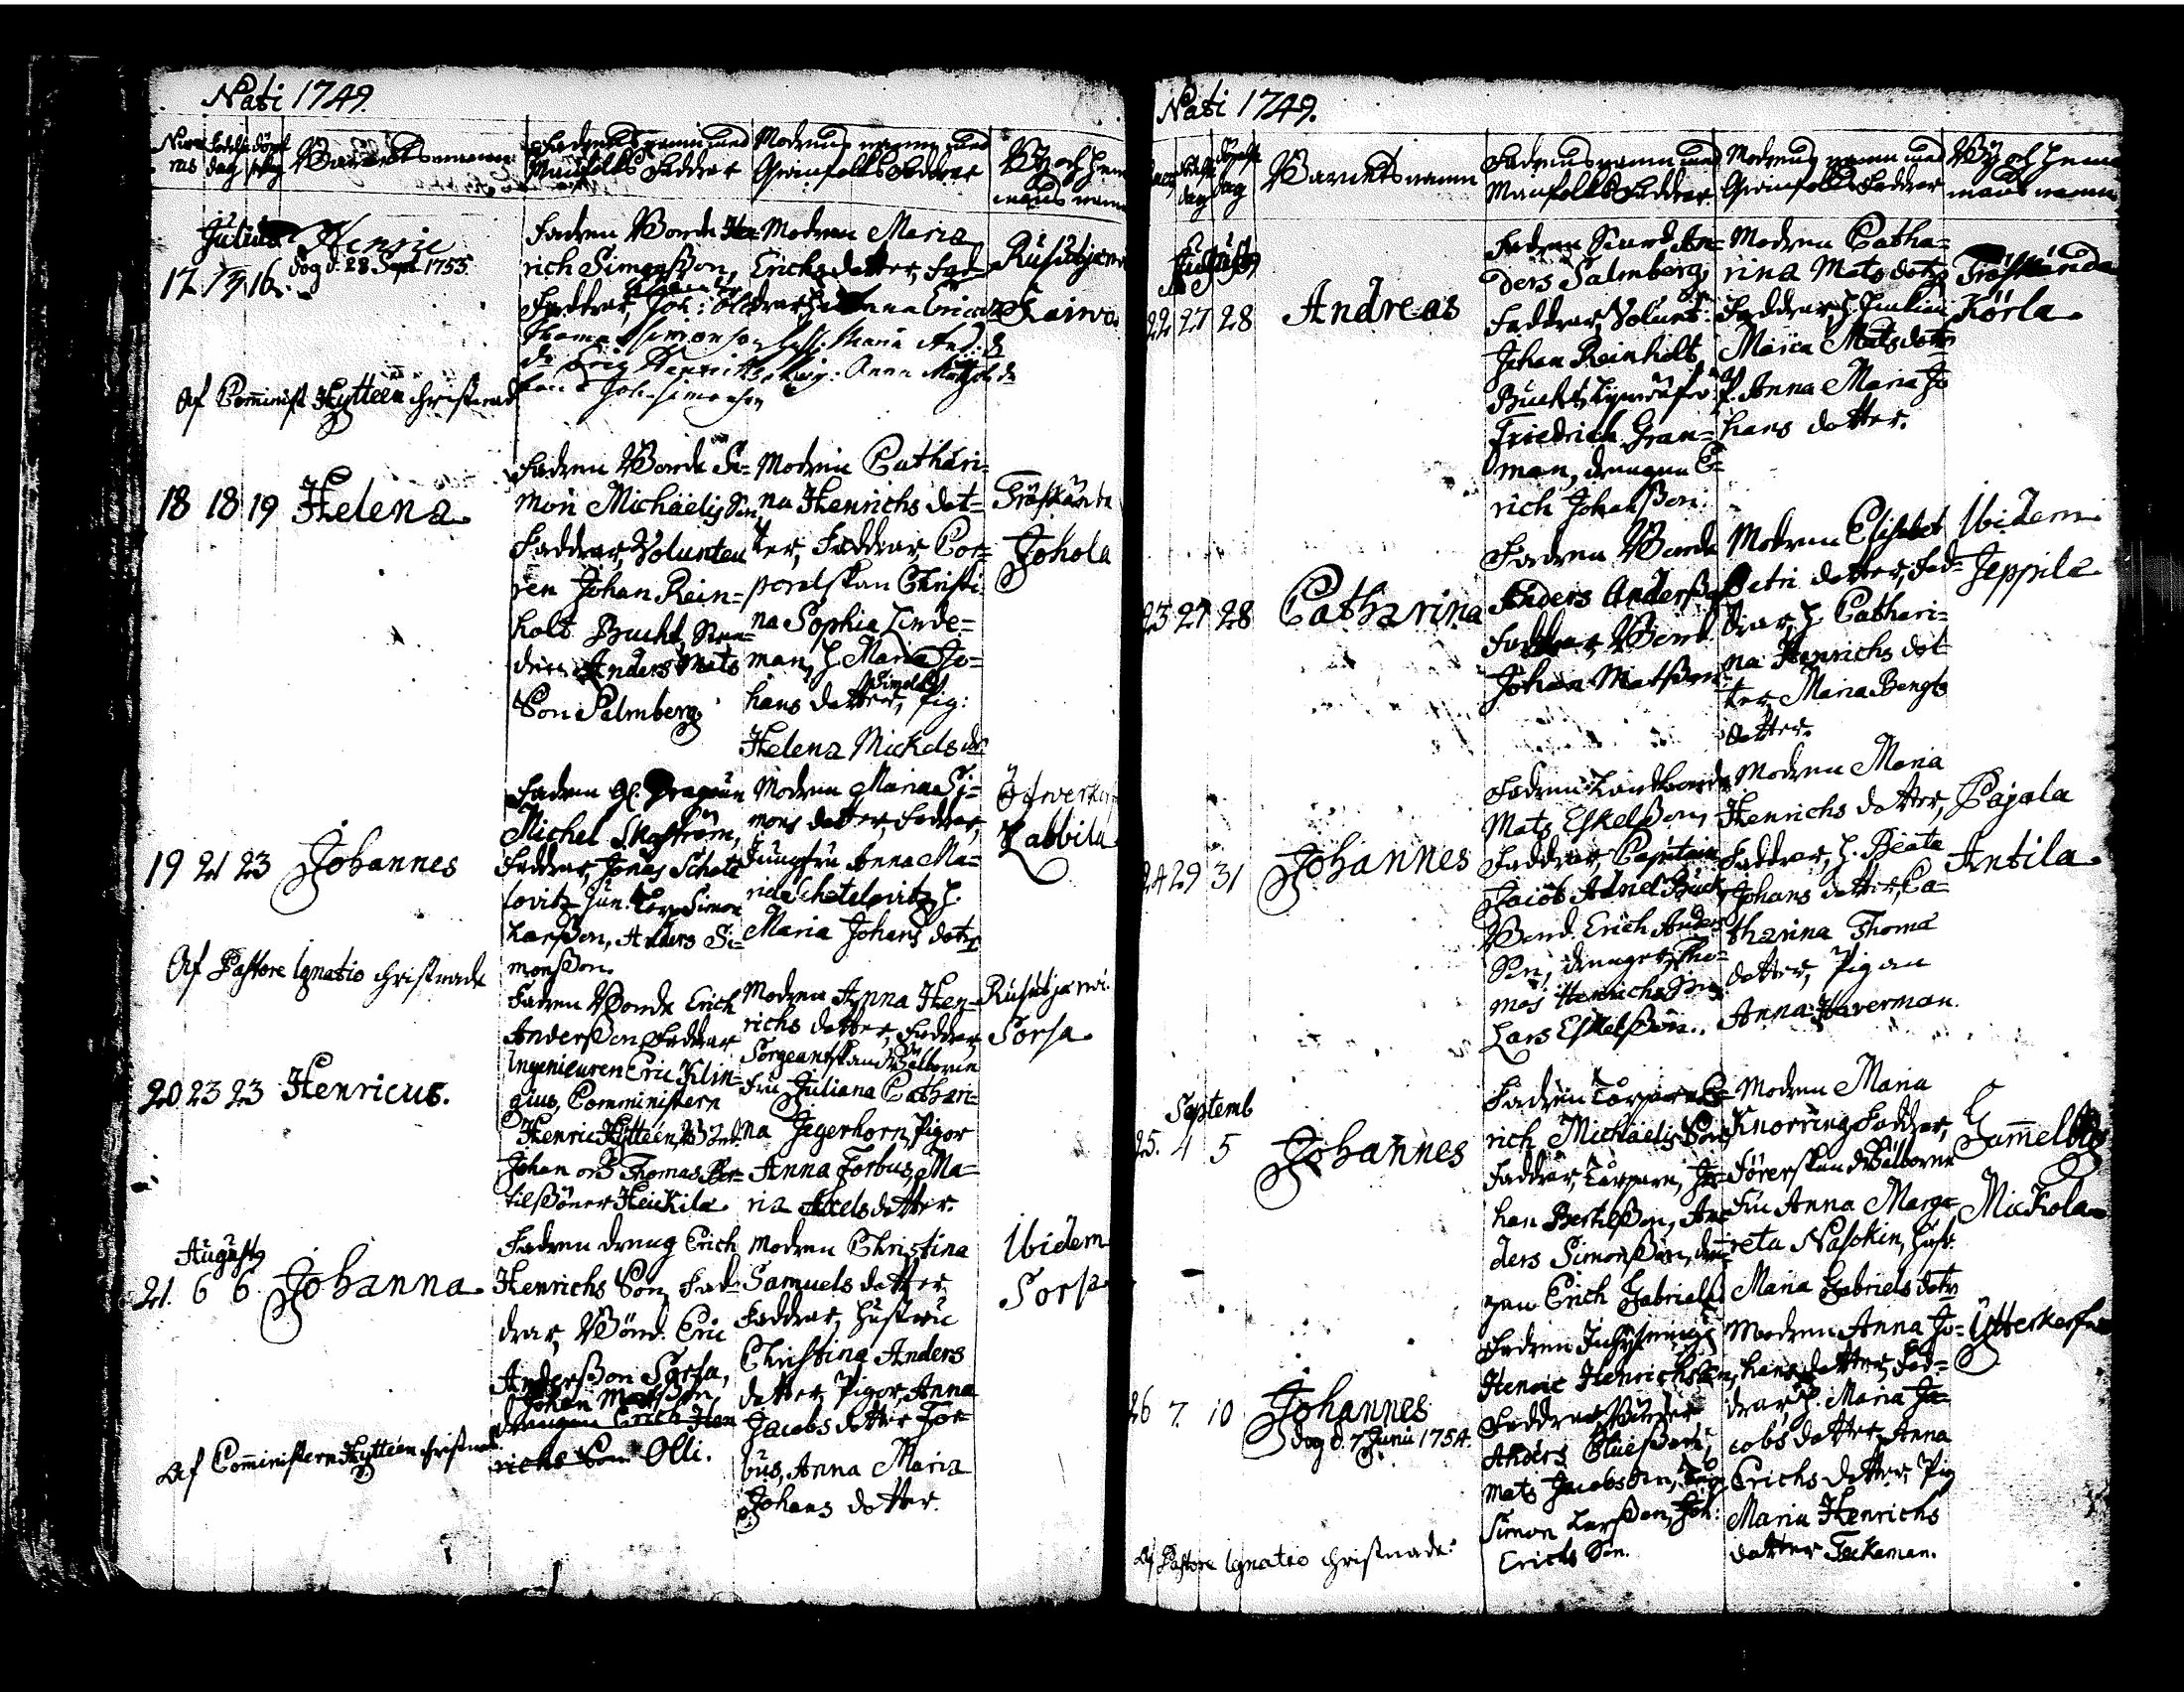 Nati 1749.
Barnets namn
Fadrens namn med
Manfolks Faddrar
Modrens namn med
Qwinfolks Faddrar
By och hem
mans namn
Julius
17 16 Henric
dog d. 28 Sept. 1755.
Fadren Bonde Hen-
rich Simonsson,
Faddrar, Joh:
Thomas Simonson
Joh. Simonson
Modren Maria
Erichs dotter, Fad-
drar, Anna Erics
Maria And: d
Anna Matts d
Rusutjerwi
Kaiwo
Af Comminist Hytteen christnad
18 18 19 Helena
Fadren Bonde Si-
mon Michaelis Son
Faddrar, Volunteu
ren Johan Rein-
holt Bucht,
Anders Mats
Son Palmberg
Modren Cathari-
na Henrichs dot-
ter, Faddrar Cor-
poralskan Christi-
na Sophia Linde-
man, h. Maria Jo-
hans dotter, Pig:
Helena Mickels dr
Träskända
Johola
19 21 23 Johannes
Fadren gl. Dragoun
Michel Skogström,
Faddrar, Jonas Schote
lovitz Jun. Simon
Larsson, Anders Si-
monsson.
Modren Maria Si-
mons dotter, Faddrar,
Jungfru Anna Ma-
ria Schotelovitz, h.
Maria Johans dotr
Labbila
Af Pastore Ignatio christnade
20 23 23 Henricus.
Fadren Bonde Erich
Andersson Faddrar
Ingenieuren Eric Klin-
gius, Comministern
Henric Hytteen, Bönd.
Johan och Thomas Ber-
tilssöner Heickilä
Modren Anna Hen-
richs dotter, Faddrar,
Sergeantskan Wälborne
Fru Juliana Cathari-
na Jegerhorn, Pigor
Anna Forbus, Ma-
ria Axels dotter.
Rusutjerwi.
Sorsa
Augusty
21. 6 6 Johanna
Fadren dreng Erich
Henrichs Son, Fad-
drar, Bönd. Eric
Andersson Sorsa,
Johan Matsson,
drängen Erich Hen
richs Son Olli.
Modren Christina
Samuels dotter
Faddrar, Hustru
Christina Anders
dotter, Pigor, Anna
Jacobs dotter For-
bus, Anna Maria
Johans dotter.
Ibidem
Sorsa
Af Comministern Hytteen christnad.
Nati 1749.
Barnets namn
Fadrens namn med
Manfolks Faddrar
Modrens namn med
Qwinfolks Faddrar
By och hem
mans namn
Augusty
22 27 28 Andreas
Fadren An-
ders Palmberg
Faddrar, Volunt:
Johan Reinholt
Bucht,
Friedrich Gran-
man, drengen E-
rich Johansson
Modren Catha-
rina Mats dotr
Faddrar, h.
Maria Mats dotr
P. Anna Maria Jo
hans dotter.
Träskända
Körla
23 27 28 Catharina
Fadren Bonde
Anders Andersson
Faddrar, Bönd.
Johan Matsson
Modren Elisabet
Petri dotter, Fad-
drar, h. Cathari-
na Henrichs dot
ter, Maria Bengts
dotter.
Ibidem
Jeppila
24 29 31 Johannes
Fadren Landbonde
Mats Eskelsson,
Faddrar, Capitain
Jacob
Bönd. Erich Anders
Son, drengar, Tho-
mas Henrichsson
Lars Eskelsson.
Modren Maria
Henrichs dotter,
Faddrar, h. Beata
Johans dotter, Ca-
tharina Thoma
dotter, Pigan
Anna Haverman.
Pajala
Antila
Septemb
25. 4 5 Johannes
Fadren Torparen E-
rich Michaelis Son
Faddrar, Torparn, Jo-
han Bertilsson, An-
ders Simonsson, dren-
gen Erich Gabriels
Modren Maria
Knorring, Faddrar,
Förerskan Wälborne
Fru Anna Marga-
reta Nasokin, Hust.
Maria Gabriels dotr
Gammelby
Mickola
26 7. 10 Johannes
dog d. 7 Junii 1754.
Fadren Inhysning
Henric Henrichsson,
Faddrar, Bönder,
Anders
Mats Jacobsson,
Simon Larsson, Joh:
Erichs Son.
Modren Anna Jo-
hans dotter, Fad-
drar, h. Maria Ja-
cobs dotter, Anna
Erichs dotter, Pig
Maria Henrichs
dotter Tackeman.
Ytterkorskn
Af Pastore Ignatio christnade.